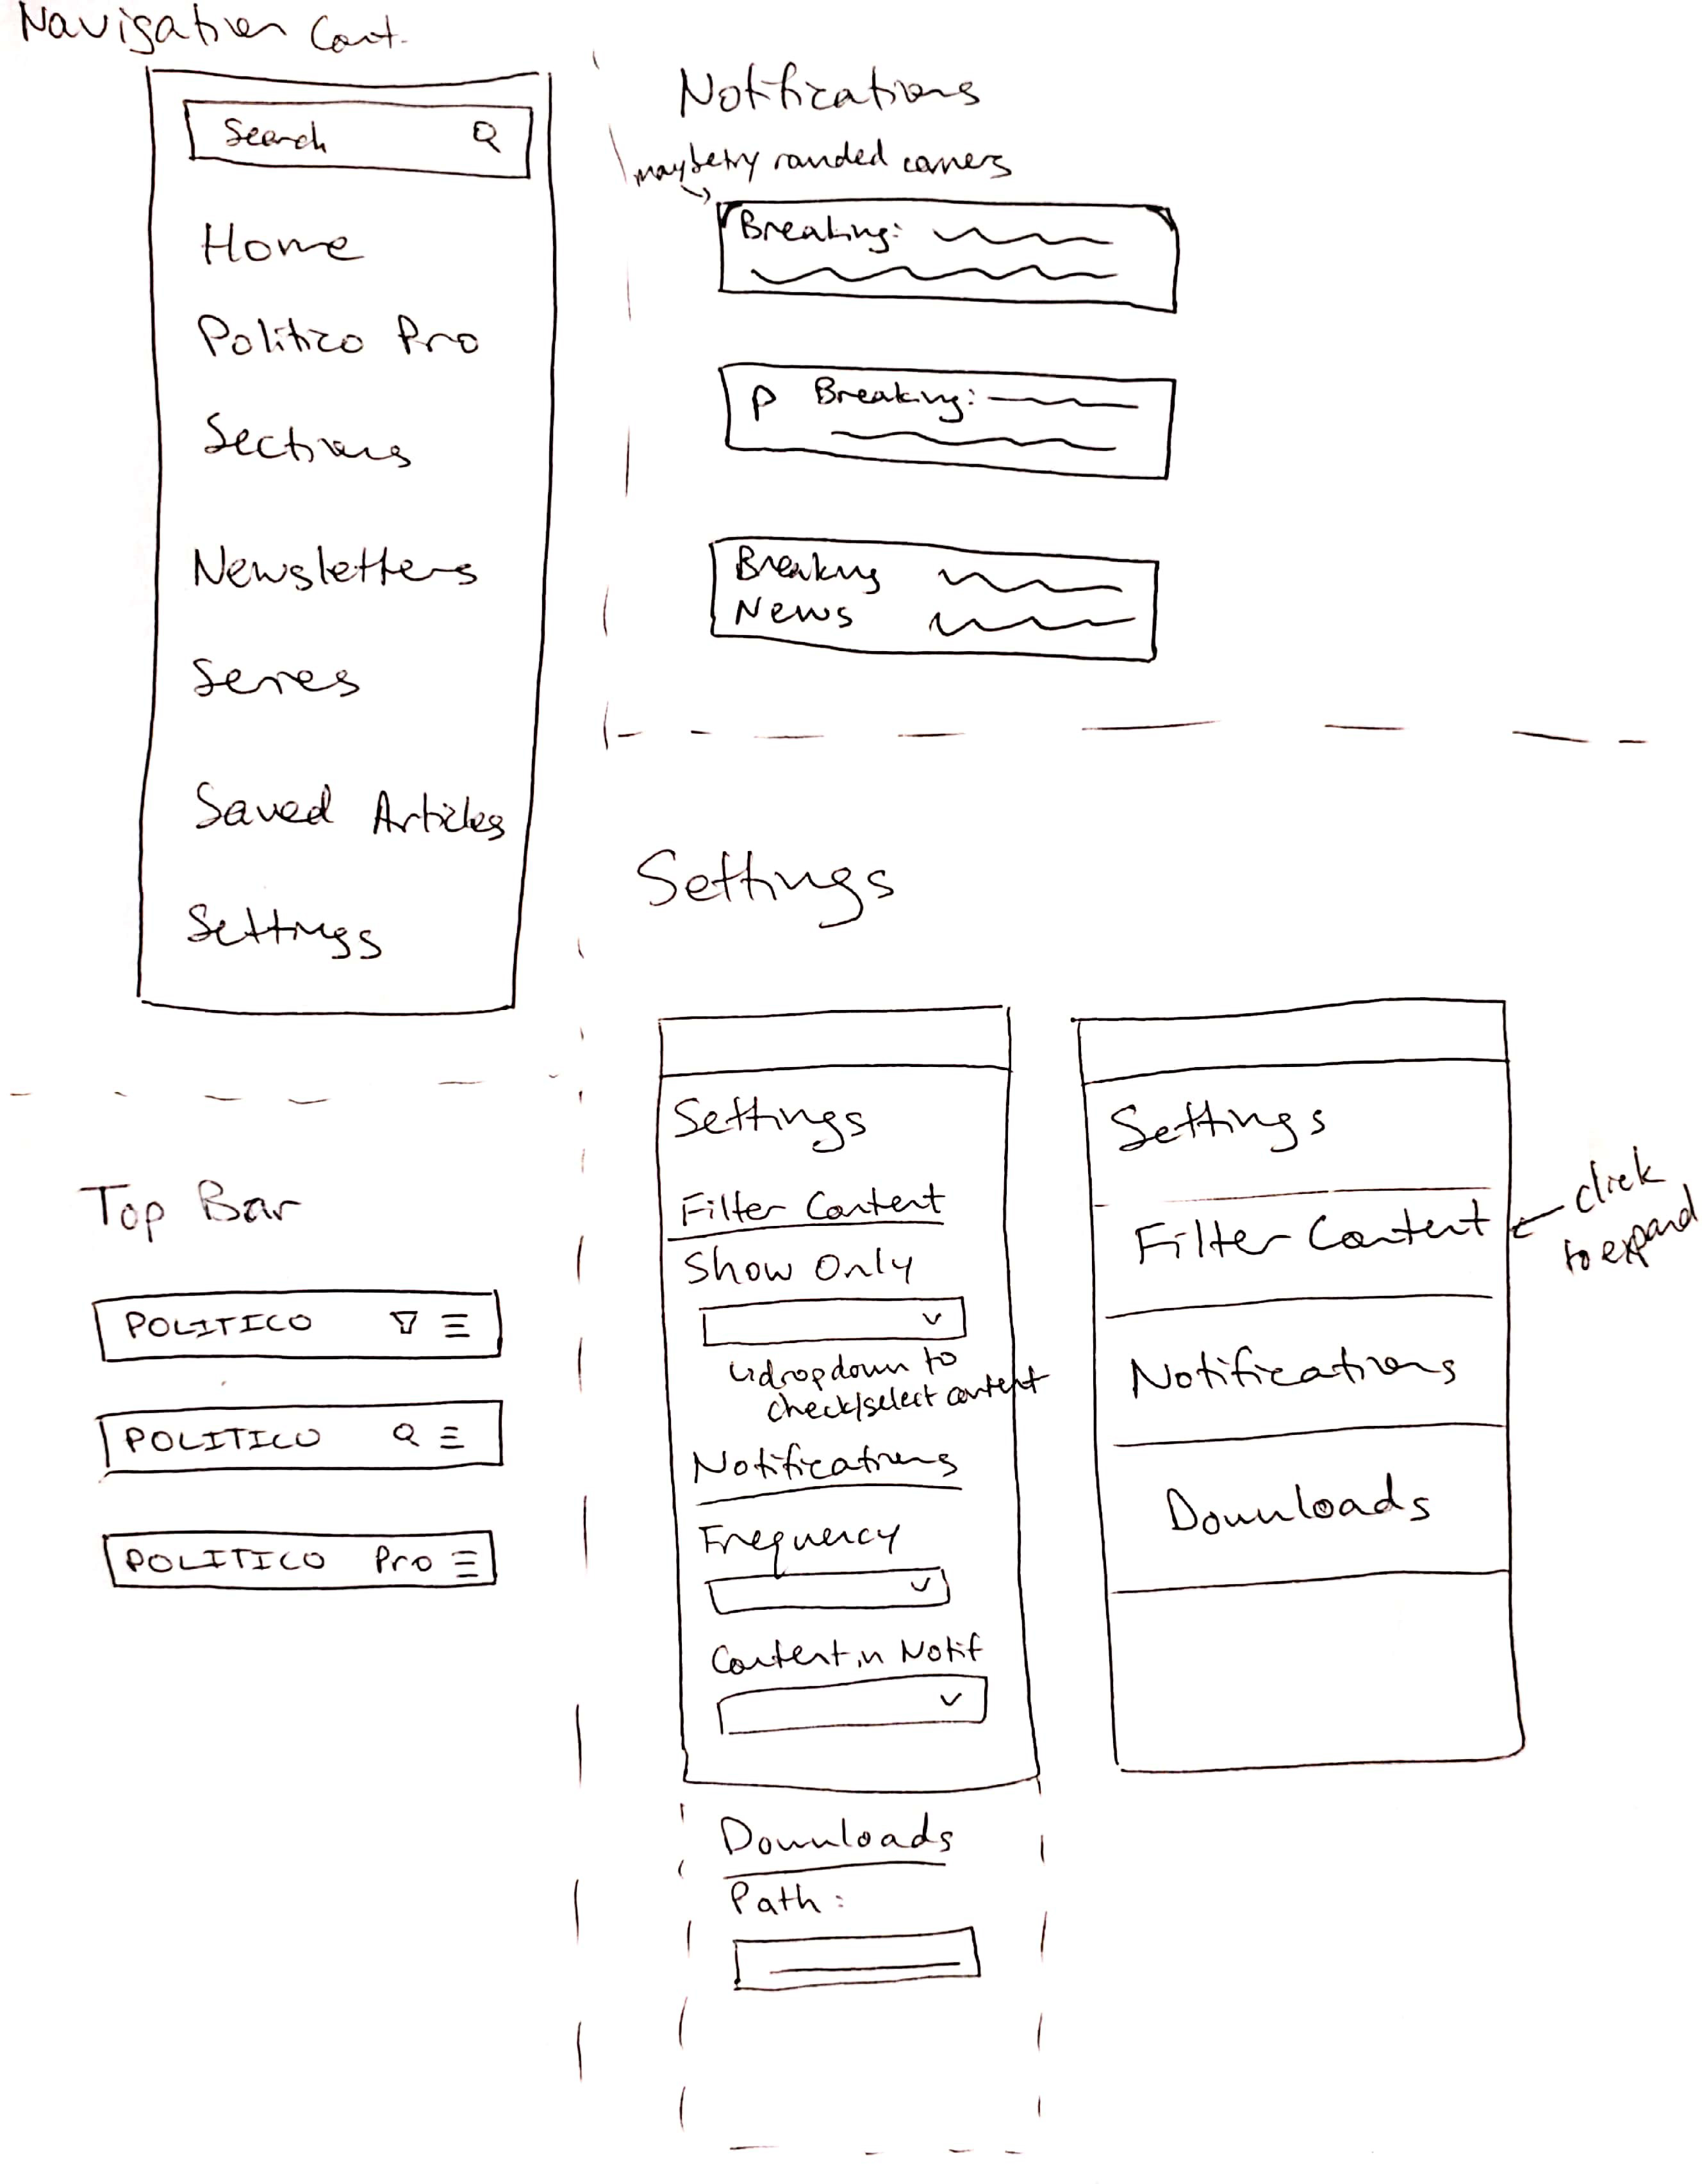 Navigation Cont.
Search
Home
Politico Pro
Sections
Newsletters
Series
Saved Articles
Settings
Notifications
maybe try rounded corners
Breaking:
P Breaking:
Breaking
News
Top Bar
POLITICO
POLITICO
POLITICO Pro
Settings
Settings
Filter Content
Show Only
dropdown to
check/select content
Notifications
Frequency
Content in Notif
Downloads
Path:
Settings
Filter Content
click
to expand
Notifications
Downloads